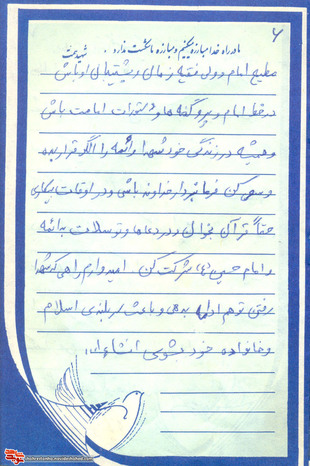 ۶
ما در راه خدا مبارزه میکنیم و مبارزه ما شکست ندارد . شهید بهشتی
مطیع امام و ولی فقیه زمان و پشتیبان او باش
در خط امام و پیرو گفته ها و دستورات امامت باش
و همیشه در زندگی خود شهدا و ائمه را الگو قرار بده
و سعی کن فرمانبردار خداوند باشی و در اوقات بیکاری
حتماً قرآن بخوان و در دعاها و توسلات به ائمه
و امام حسین (ع) شرکت کن . امیدوارم راهی که شهدا
رفتن تو هم ادامه بدهی و باعث سربلندی اسلام
و خانواده خود بشوی انشاءالله